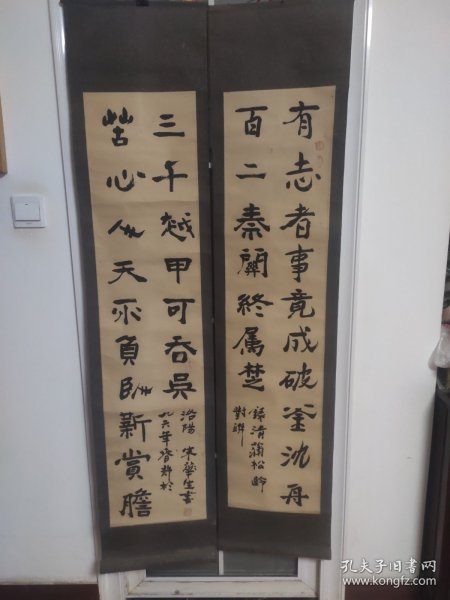 有志者事竟成破釜沈舟
百二秦關終属楚
錄清蒲松齡
對聯
苦心人天不負卧新賞膽
三千越甲可吞吳
九六年於
洛陽 宋華生書
孔夫子旧书网
www.kongfz.com